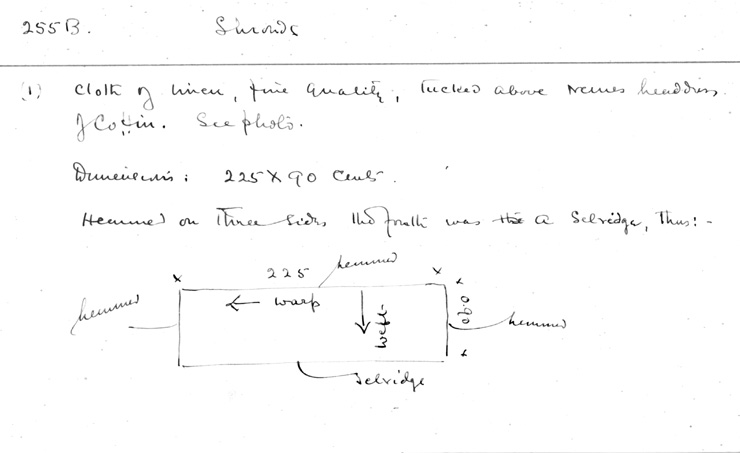 255B. Shrouds
(1) Cloth of linen, fine quality, tucked above Nemes headdress
of Coffin. See photo.
Dimensions: 225 X 90 Cents.
Hemmed on three sides the fourth was a Selvidge, Thus:-
225 hemmed
hemmed ← warp weft 0.90 hemmed
Selvidge